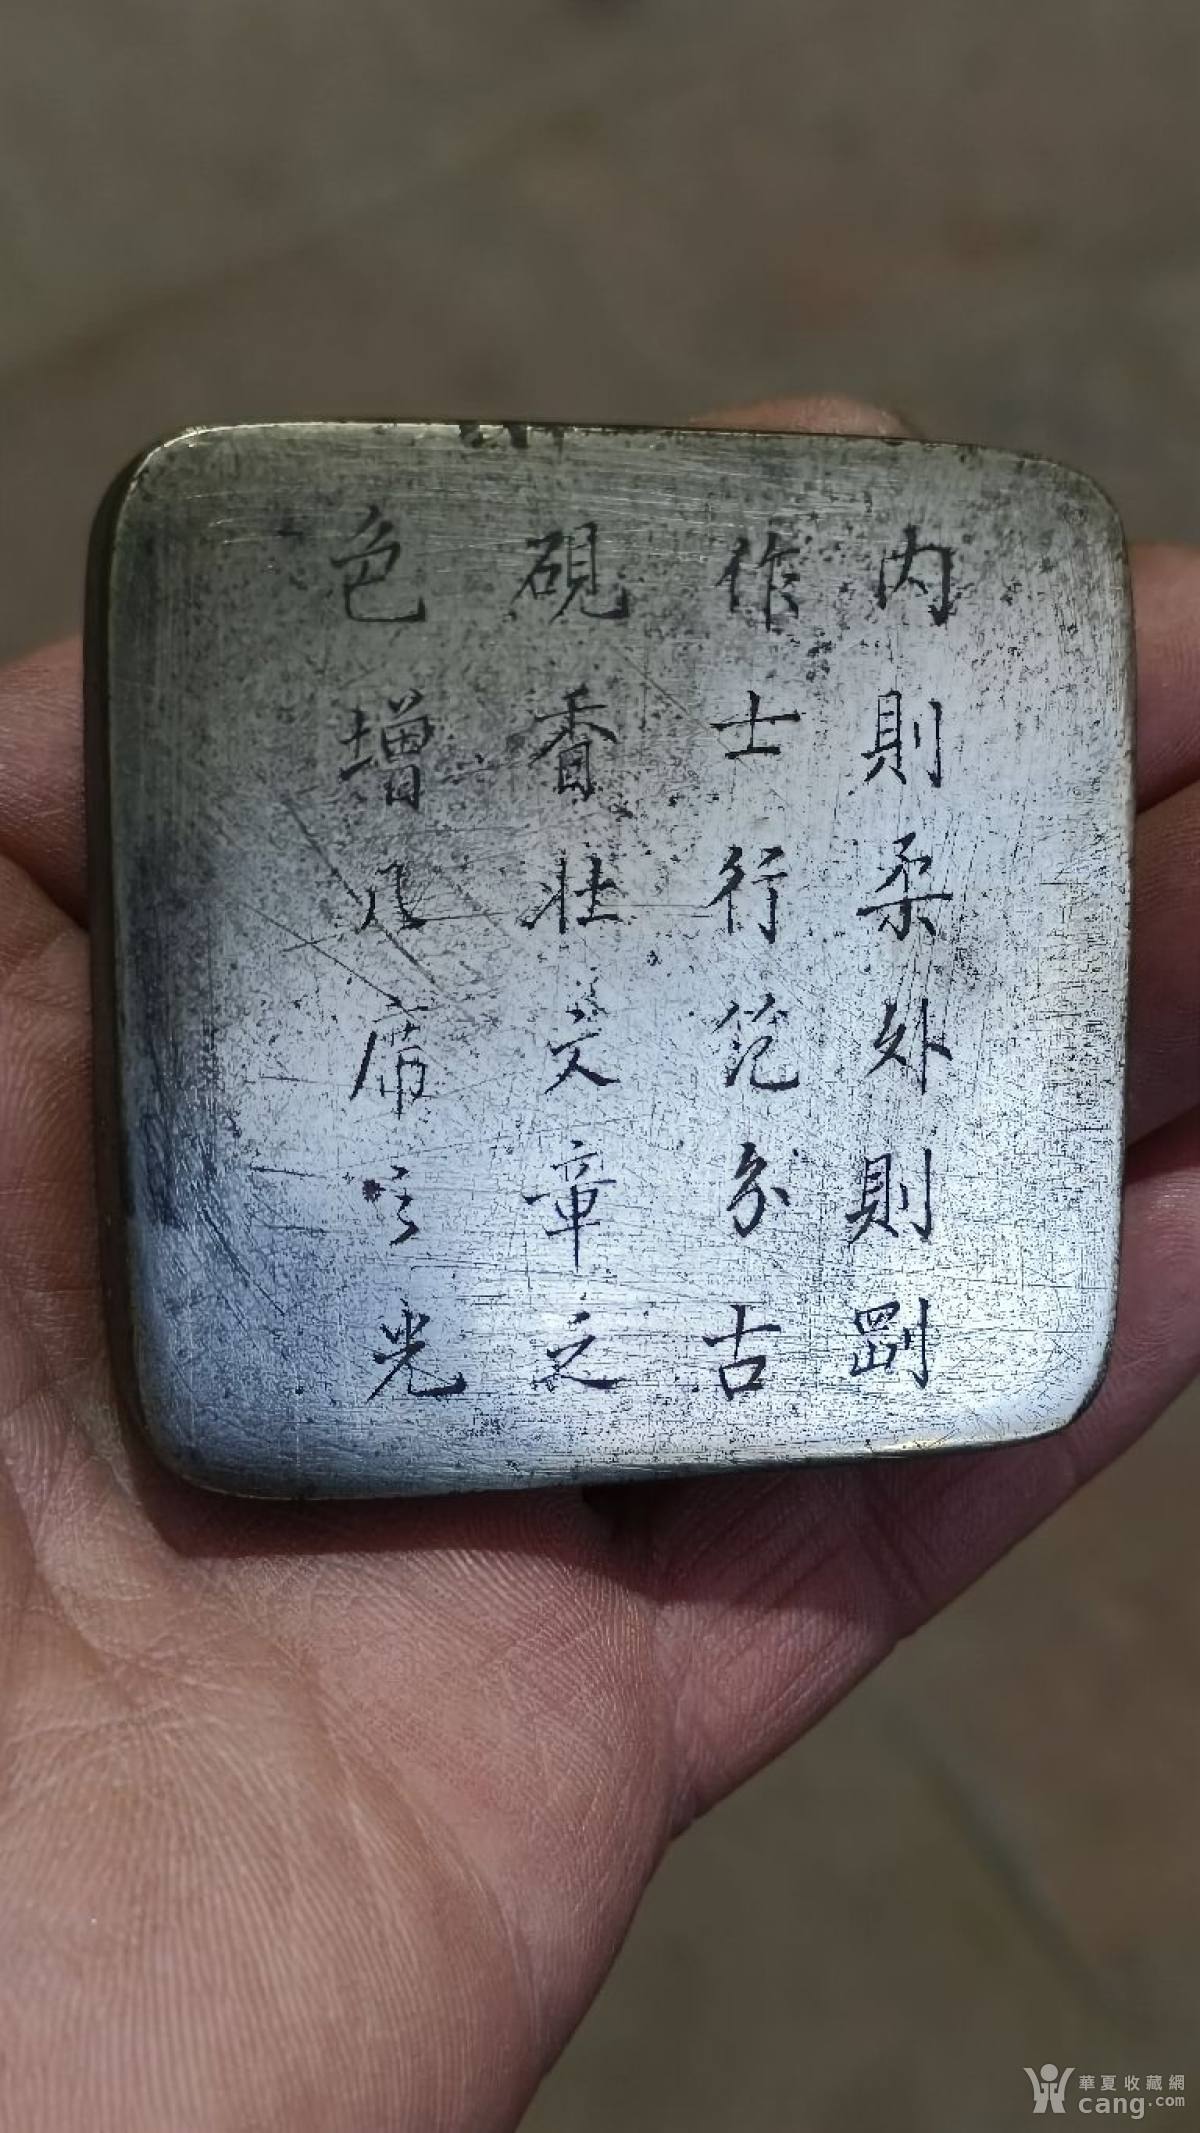 内則柔外則剛
作士行笵分古
硯香壯文章之
色增几席之光
華夏收藏網
cang.com